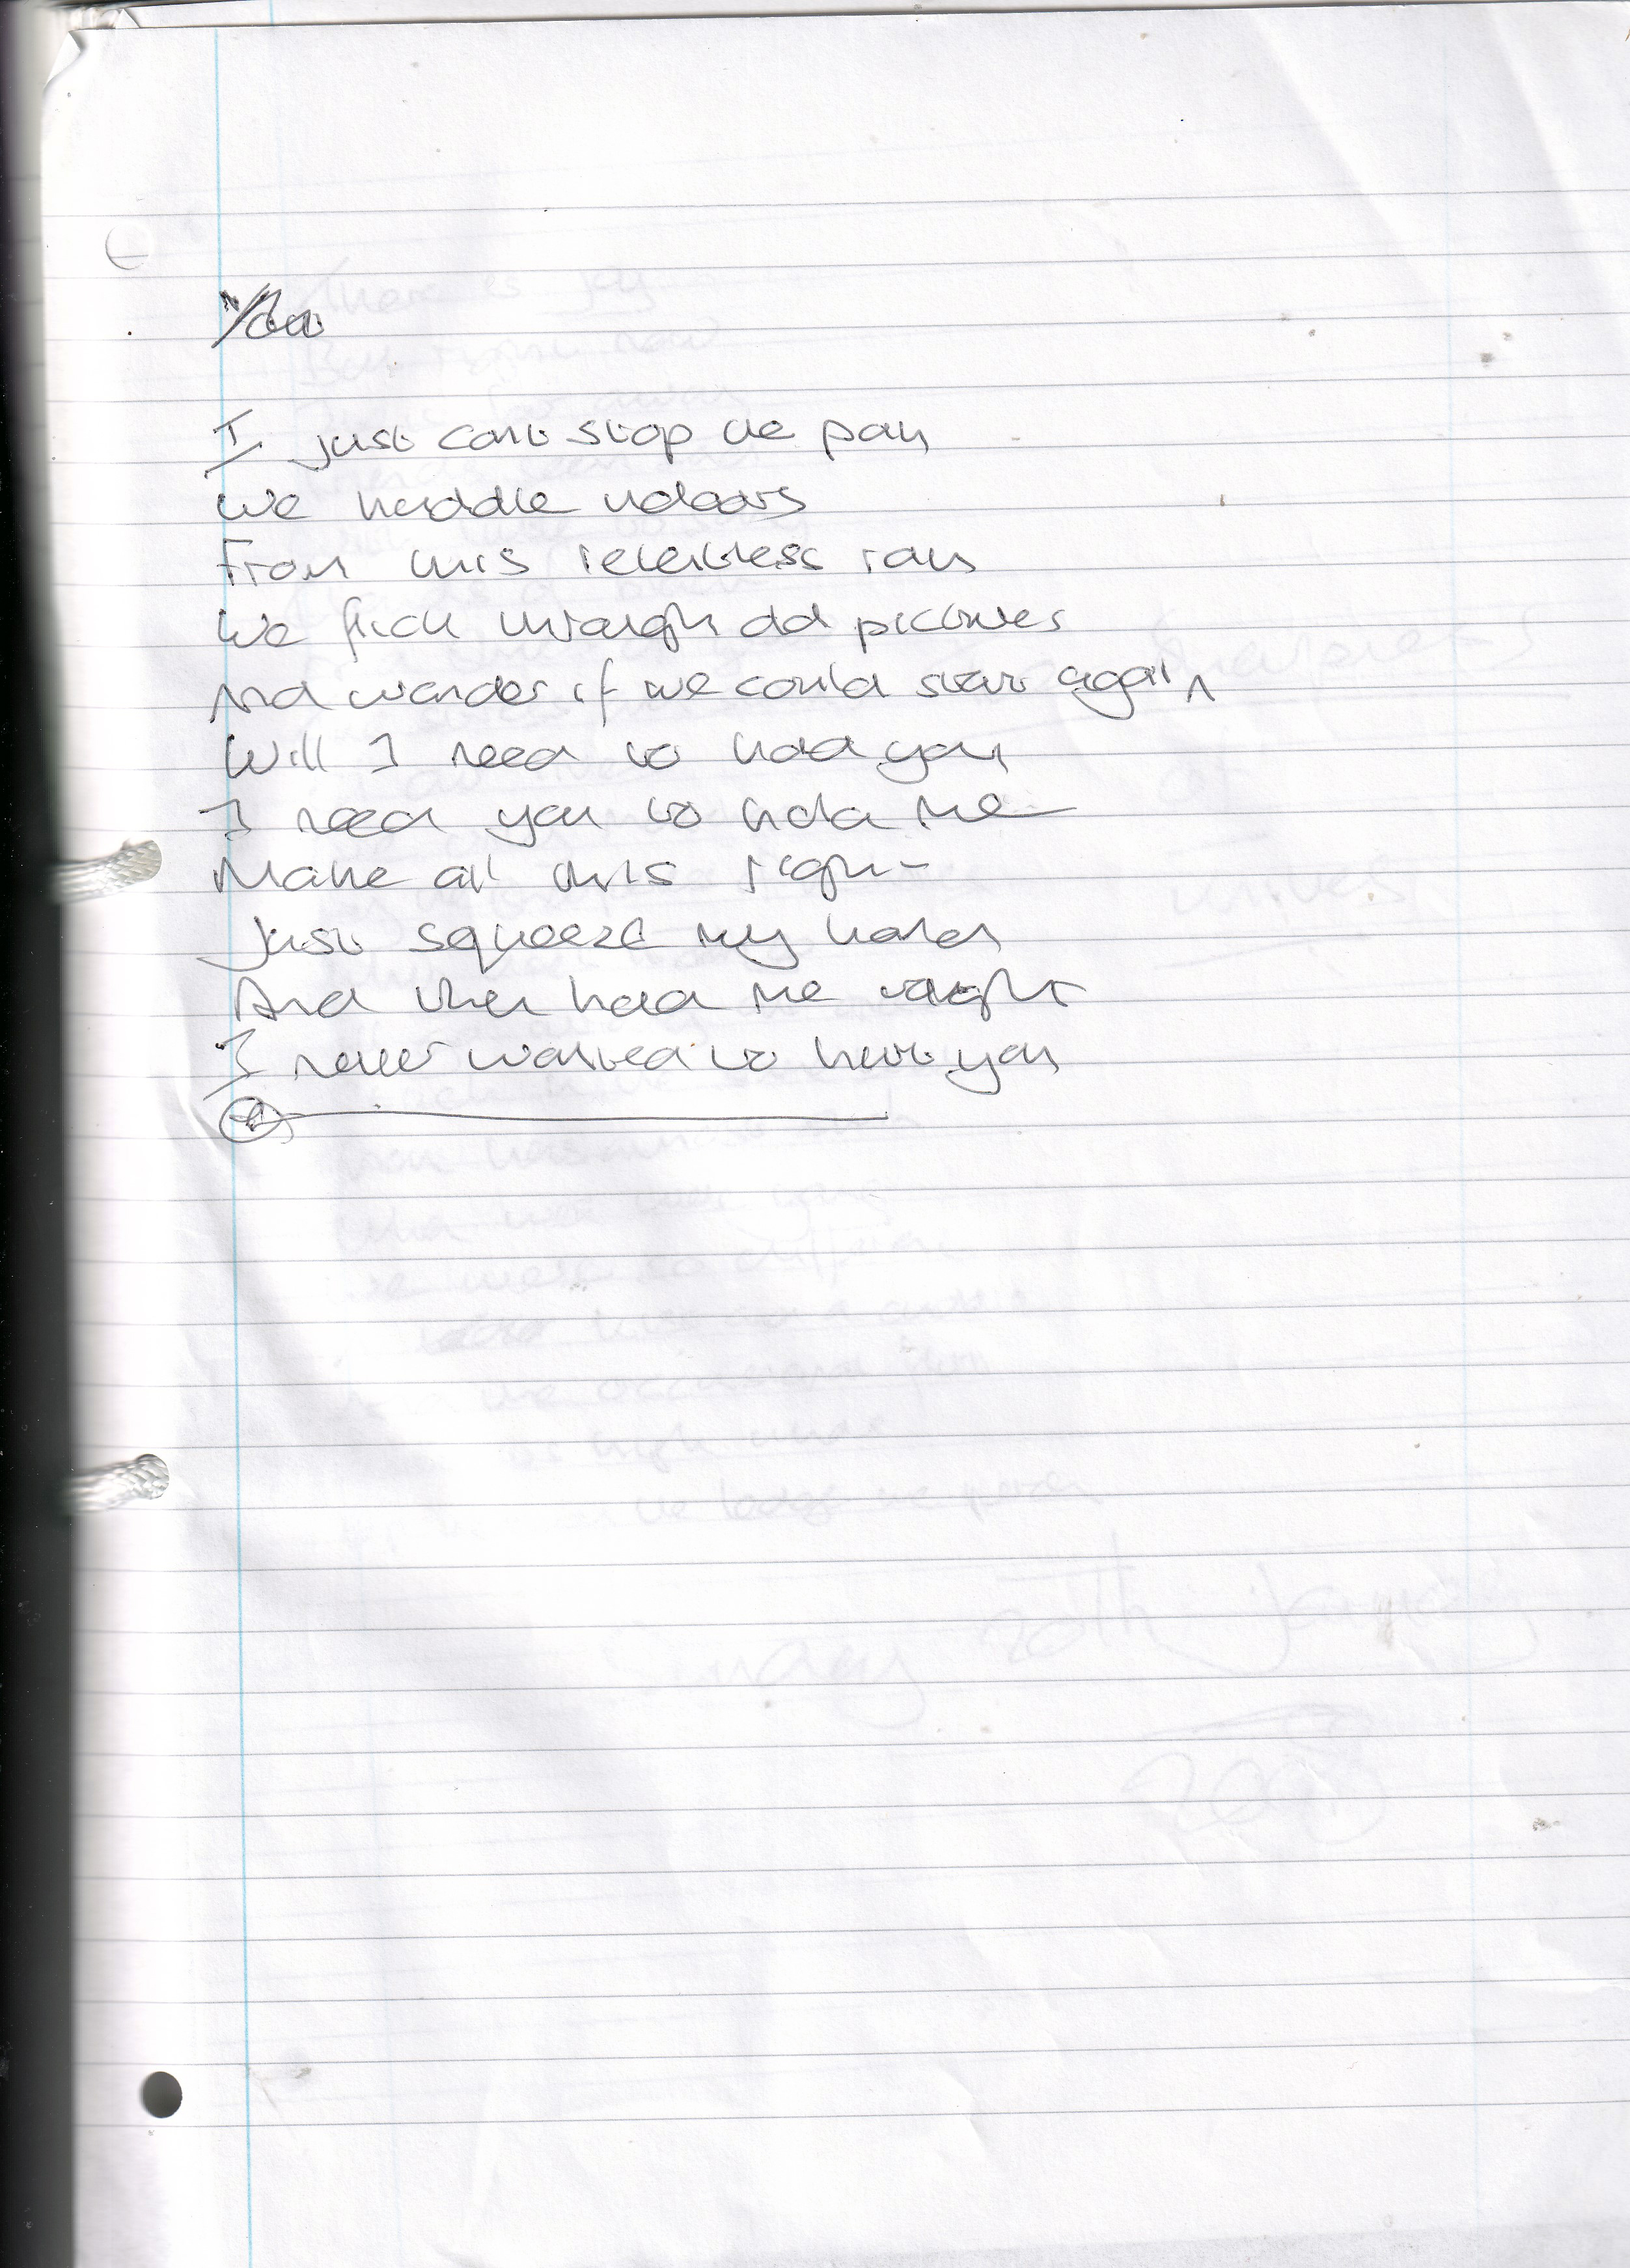 You
I just cant stop the pain
We huddle indoors
From this relentless rain
We flick through old pictures
And wonder if we could start again
Will I need to hold you
I need you to hold me
Make all this right
Just squeeze my hand
And then hold me tight
I never wanted to hurt you